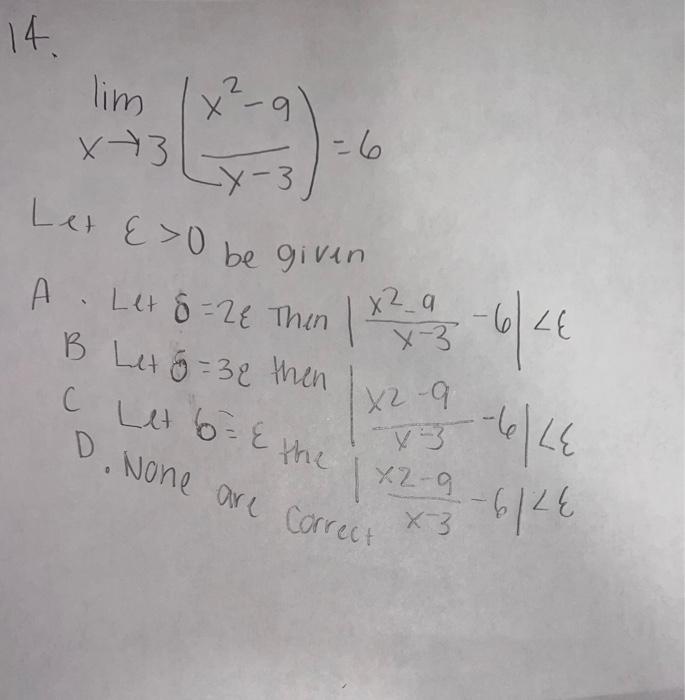 14.
lim x→3 (x²-9 / x-3) = 6
Let ε>0 be given
A. Let δ=2ε Then | x²-9 / x-3 - 6| <ε
B Let δ=3ε then | x2-9 / x-3 - 6| <ε
C Let δ=ε the | x2-9 / x-3 - 6| <ε
D. None are correct